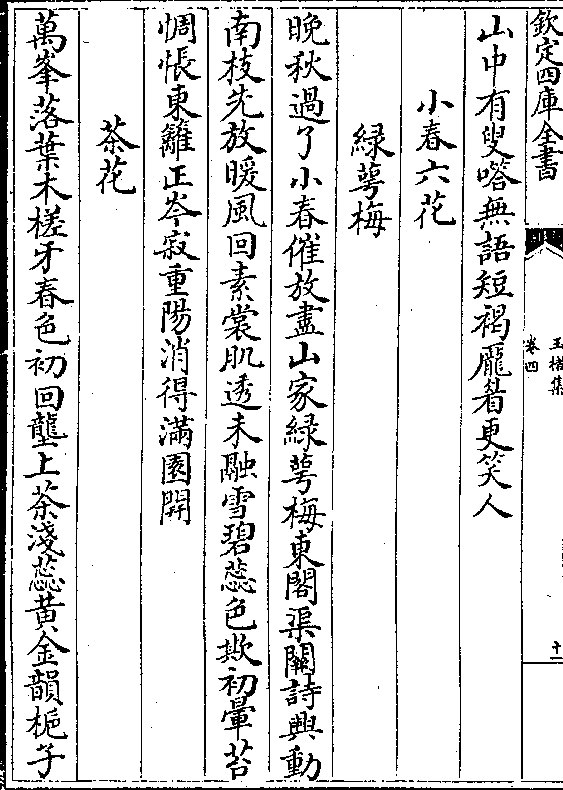 欽定四庫全書
玉楮集
卷四
十一
山中有叟嗒無語短褐龎眉更笑人
小春六花
緑萼梅
晚秋過了小春催放盡山家緑萼梅東閣渠關詩興動
南枝先放暖風回素裳肌透未融雪碧蕊色欺初暈苔
惆悵東籬正岑寂重陽消得滿園開
茶花
萬峯落葉木槎牙春色初回壟上茶淺蕊黄金韻梔子